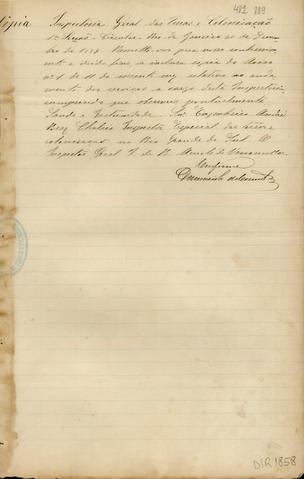 482 389
Copia Inspectoria Geral das Terras e Colonisação
1ª Secção Circular Rio de Janeiro 20 de
bro de 1889 Remetto-vos para vosso conhecimen
to e devido fim, a inclusa copia do Aviso
nº 1 de 11 do corrente mez relativo ao anda
mento dos serviços a cargo desta Inspectoria,
cumprindo que observeis pontualmente
Saude e Fraternidade. Sr. Engenheiro
Inspector Especial das Terras e
colonisação no Rio Grande do Sul. O
Inspector Geral F. de B. Accioli de Vasconcellos
Conforme
DIR1858